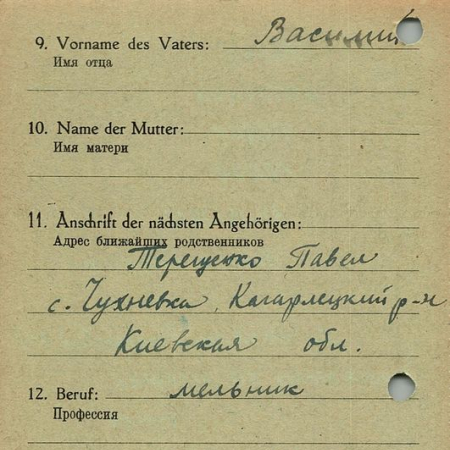 9. Vorname des Vaters: Василий
Имя отца
10. Name der Mutter:
Имя матери
11. Anschrift der nächsten Angehörigen:
Адрес ближайших родственников
Терещенко Павел
с. Чухневка, Кагарлецкий р-н
Киевская обл.
12. Beruf: мельник
Профессия